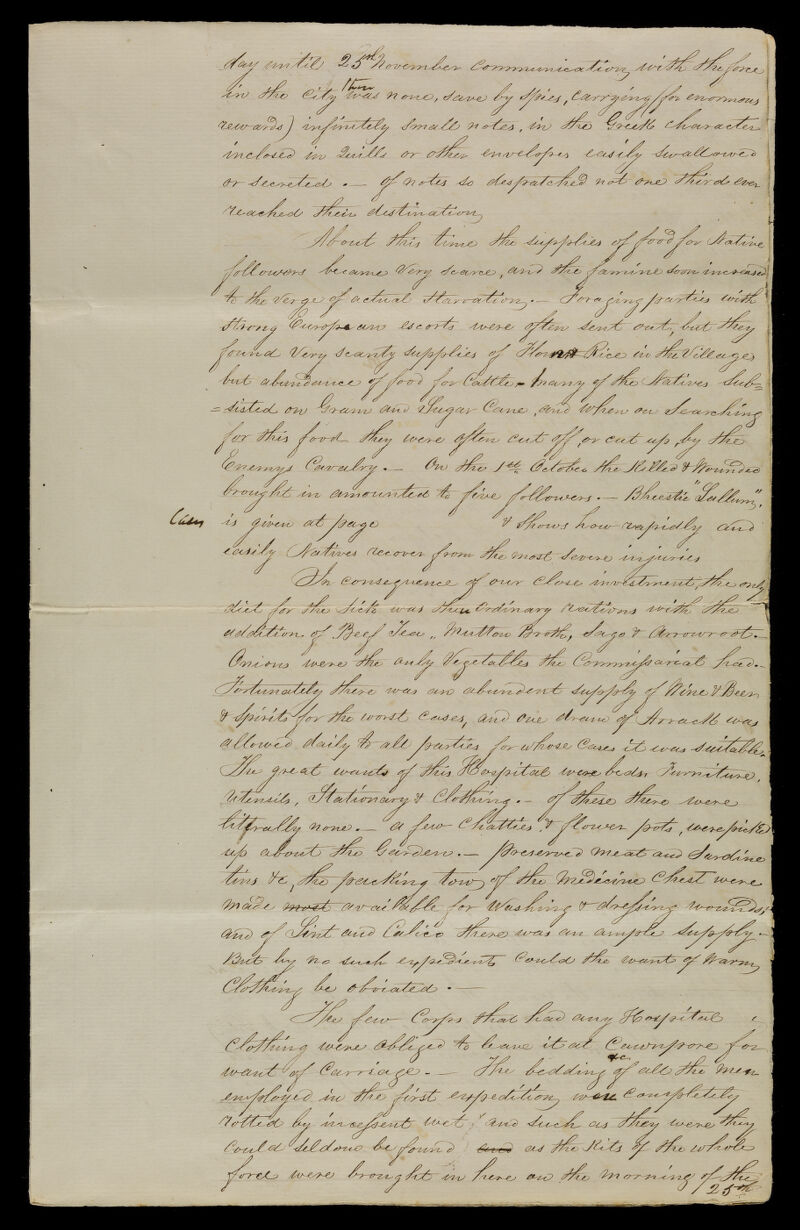 day until 25th November communication with the force
in the City there was none, save by spies, carrying (for enormous
rewards) infinitely small notes, in the Greek character
inclosed in Quills or other envelopes easily swallowed
or secreted. — Of notes so despatched not one third ever
reached their destination
About this time the supplies of food for Native
followers became very scarce, and the famine soon increased
to the verge of actual starvation. — Foraging parties with
strong European escorts were often sent out, but they
found very scanty supplies of Rice in the Villages
but abundance of food for Cattle — Many of the Natives sub=
=sisted on Gram and Sugar Cane, and when on searching
for this food they were often cut off, or cut up, by the
Enemys Cavalry. — On the 1st October the Killed & Wounded
brought in amounted to five followers. — Bheestie "Sullum",
Case is given at page & shows how rapidly and
easily Natives recover from the most severe injuries
In consequence of our close investment, the only
diet for the sick was their ordinary rations with the
addition of Beef Tea, Mutton Broth, Sago & Arrowroot. —
Onions were the only Vegetables the Commissariat had. —
Fortunately there was an abundent supply of Wine & Beer
& spirits for the worst cases, and one dram of Arrack was
allowed daily to all parties for whose cases it was suitable.
The great wants of this Hospital were beds, Furniture,
Utensils, Stationary & Clothing. — Of these there were
litterally none. — a few Chatties & flower pots, were picked
up about the Garden. — Preserved meat and Sardine
tins &c, the packing tow of the Medicine Chest were
made most available for washing & dressing wounds;
and of Lint and Calico there was an ample supply. —
But by no such expedient could the want of warm
Clothing be obviated. —
The few Corps that had any Hospital
Clothing were obliged to leave it at Cawnpore for
want of Carriage. — The bedding &c of all the men
employed in the first expedition were completely
rotted by incessent wet; and such as they were they
could seldom be found and as the Kits of the whole
force were brought in here on the morning of the
25th